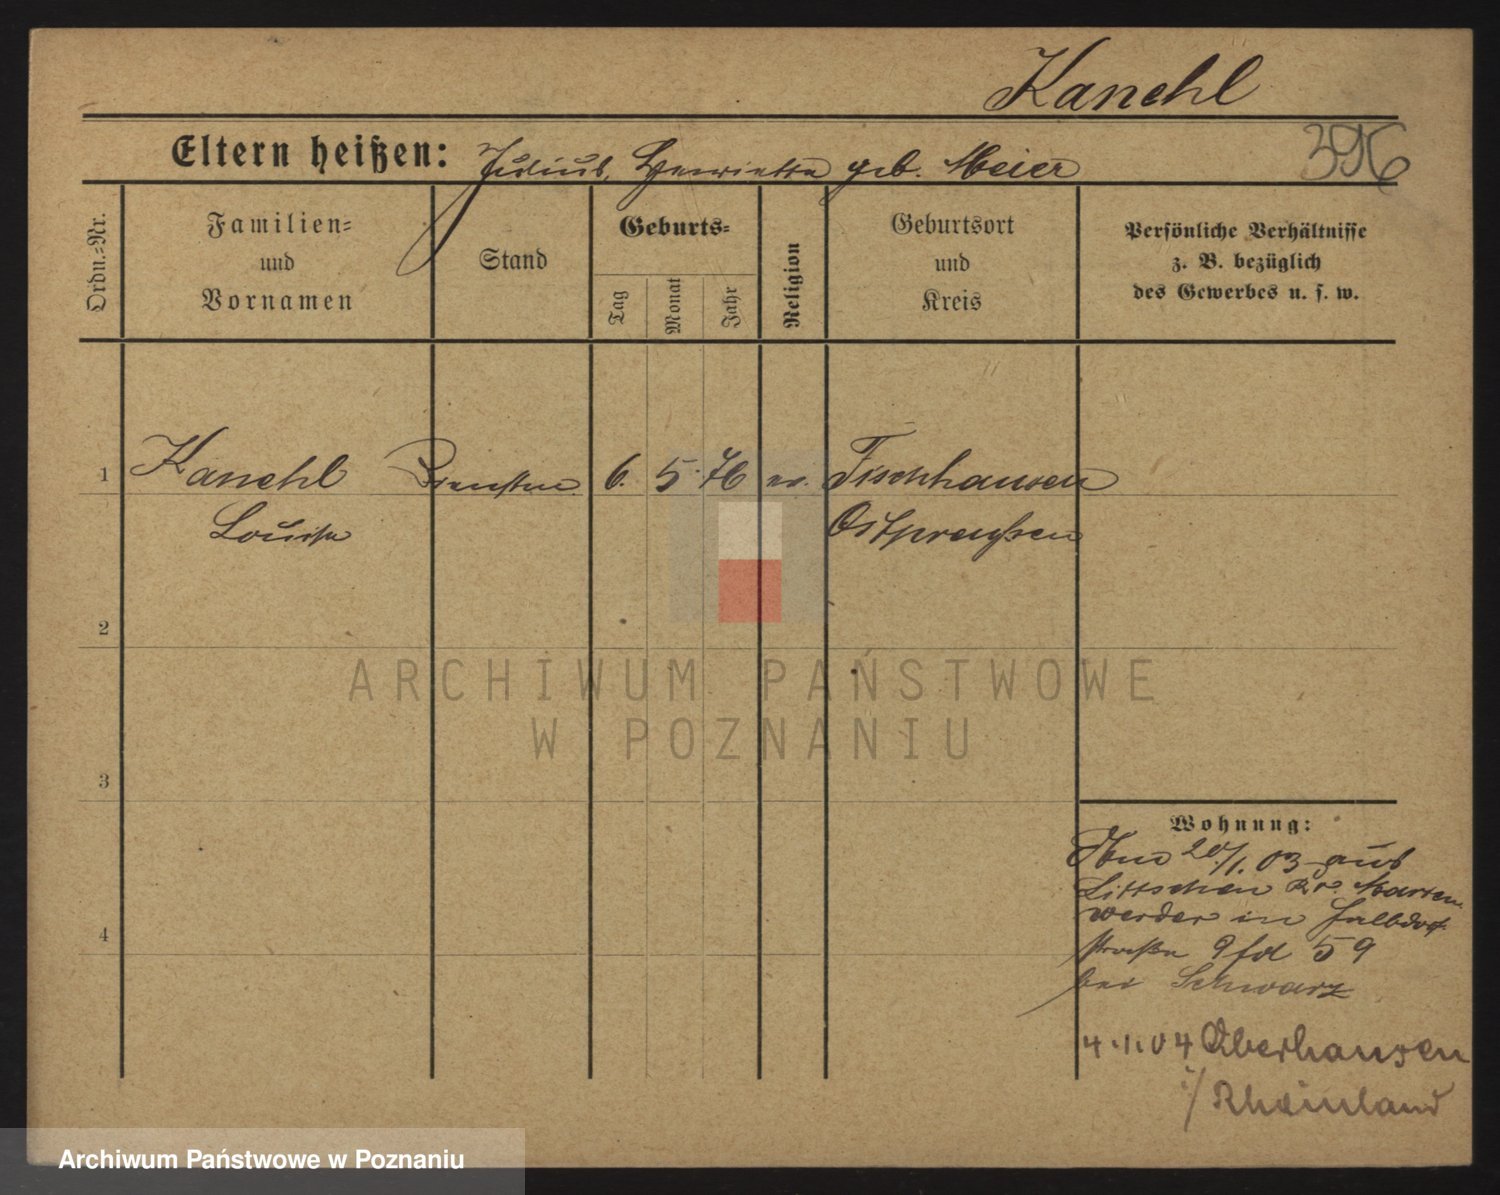 Kanehl
396
Eltern heißen: Julius, Henriette geb. Meier
Ordn.=Nr.
Familien= und Vornamen
Stand
Geburts=
Tag
Monat
Jahr
Religion
Geburtsort und Kreis
Persönliche Verhältnisse
z. B. bezüglich
des Gewerbes u. s. w.
1 Kanehl 6. 5. 76 ev. Fischhausen
Louise Ostpreußen
2
3
4
Wohnung:
20/1. 03 aus
Littschen Kr. Marien
werder in
straße 59
bei Schwarz
4.1.04 Oberhausen
i/ Rheinland
ARCHIWUM PAŃSTWOWE
W POZNANIU
Archiwum Państwowe w Poznaniu